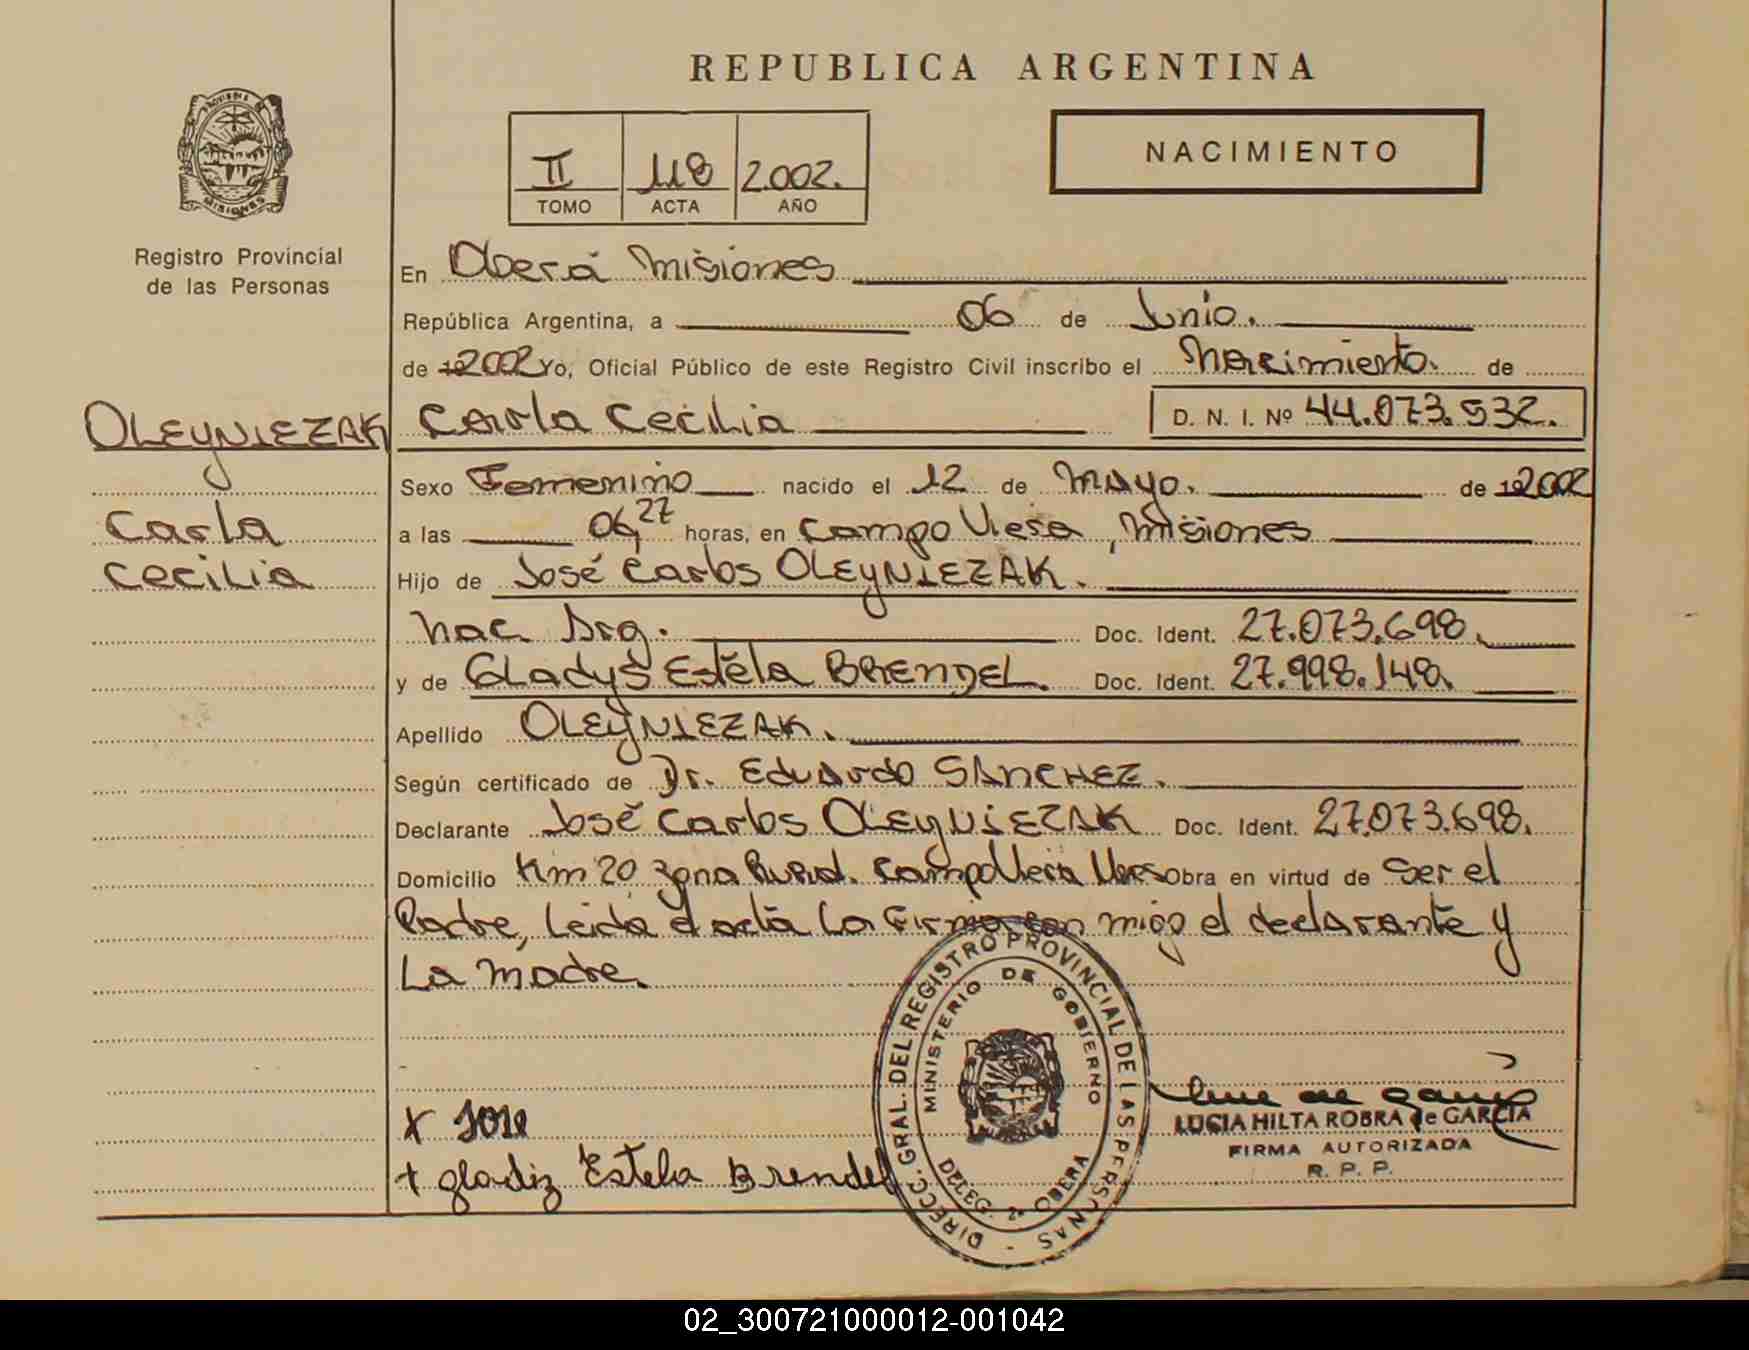 REPUBLICA ARGENTINA
II 118 2.002.
TOMO ACTA AÑO
NACIMIENTO
PROVINCIA DE
MISIONES
Registro Provincial
de las Personas
En Oberá Misiones
República Argentina, a 06 de Junio.
de 19 2002 Yo, Oficial Público de este Registro Civil inscribo el Nacimiento. de
OLEYNIEZAK
Carla
Cecilia
Carla Cecilia D. N. I. Nº 44.073.532.
Sexo Femenino nacido el 12 de Mayo. de 19 2002
a las 06,27 horas, en Campo Viera, Misiones
Hijo de José Carlos OLEYNIEZAK.
Nac. Arg. Doc. Ident. 27.073.698.
y de Gladys Estela BRENDEL. Doc. Ident. 27.998.148.
Apellido OLEYNIEZAK.
Según certificado de Dr. Eduardo SANCHEZ.
Declarante José Carlos OLEYNIEZAK Doc. Ident. 27.073.698.
Domicilio Km 20 Zona Rural. Campo Viera Mnes obra en virtud de Ser el
Padre, Leida el acta La Firma con migo el declarante y
La Madre.
x Jose
+ gladiz Estela Brendel
DIRECC. GRAL. DEL REGISTRO PROVINCIAL DE LAS PERSONAS -
MINISTERIO DE GOBIERNO
DELEG. 2ª OBERA
LUCIA HILTA ROBRA de GARCIA
FIRMA AUTORIZADA
R. P. P.
02_300721000012-001042